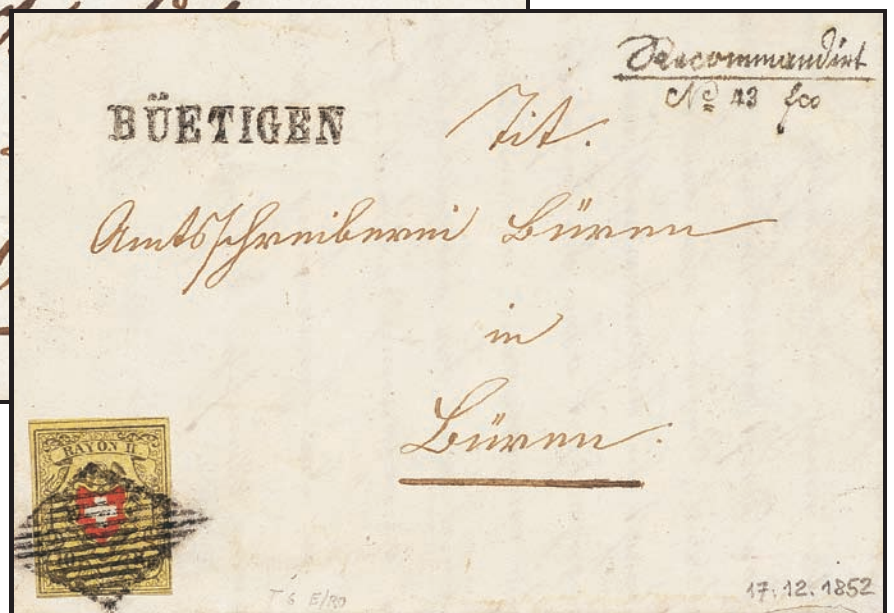 Recommandirt
No 43 fco
BÜETIGEN
Tit.
Amtsschreiberei Büren
in
Büren.
RAYON II
17.12.1852